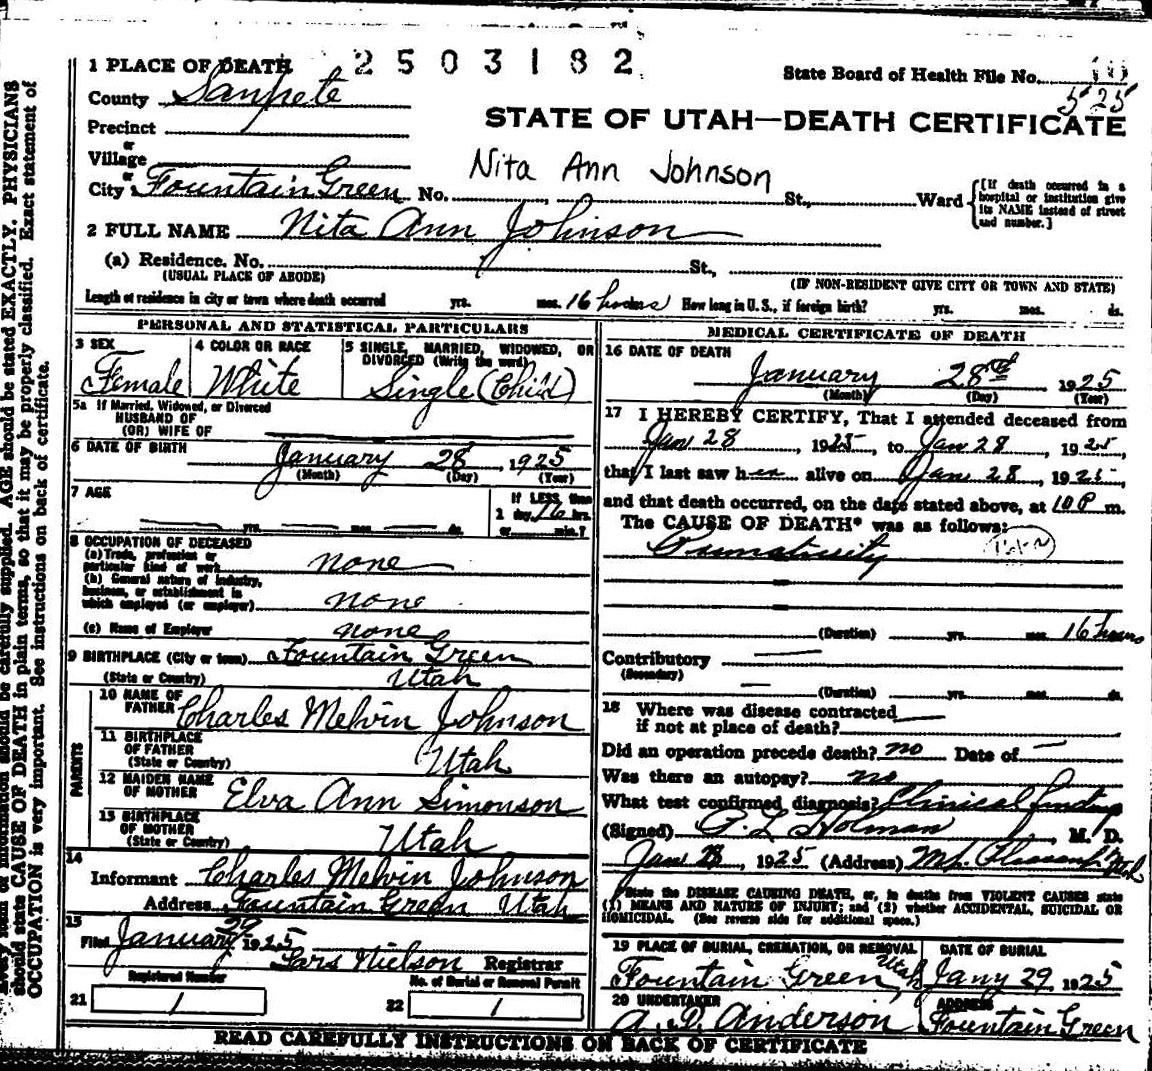 1 PLACE OF DEATH
2503182
State Board of Health File No.
525
County Sanpete
STATE OF UTAH—DEATH CERTIFICATE
Precinct
or
Village
or
City Fountain Green No. St., Ward
Nita Ann Johnson
[If death occurred in a
hospital or institution give
its NAME instead of street
and number.]
2 FULL NAME Nita Ann Johnson
(a) Residence. No. St.,
(USUAL PLACE OF ABODE) (IF NON-RESIDENT GIVE CITY OR TOWN AND STATE)
Length of residence in city or town where death occurred yrs. mos. 16 hours How long in U. S., if foreign birth? yrs. mos. ds.
PERSONAL AND STATISTICAL PARTICULARS
3 SEX
Female
4 COLOR OR RACE
White
5 SINGLE, MARRIED, WIDOWED, OR
DIVORCED (Write the word)
Single (Child)
5a If Married, Widowed, or Divorced
HUSBAND OF
(OR) WIFE OF
6 DATE OF BIRTH January 28 1925
(Month) (Day) (Year)
7 AGE
yrs. mos. ds.
If LESS than
1 day, 16 hrs.
or min.?
8 OCCUPATION OF DECEASED
(a) Trade, profession or
particular kind of work none
(b) General nature of industry,
business, or establishment in
which employed (or employer) none
(c) Name of Employer none
9 BIRTHPLACE (City or town) Fountain Green
(State or Country) Utah
PARENTS
10 NAME OF
FATHER Charles Melvin Johnson
11 BIRTHPLACE
OF FATHER
(State or Country) Utah
12 MAIDEN NAME
OF MOTHER Elva Ann Simonson
13 BIRTHPLACE
OF MOTHER
(State or Country) Utah
14
Informant Charles Melvin Johnson
Address Fountain Green Utah
15
Filed January 29 1925
Lars Nielson Registrar
Registered Number No. of Burial or Removal Permit
21 1 22 1
MEDICAL CERTIFICATE OF DEATH
16 DATE OF DEATH
January 28th 1925
(Month) (Day) (Year)
17 I HEREBY CERTIFY, That I attended deceased from
Jan 28, 1925, to Jan 28, 1925,
that I last saw her alive on Jan 28, 1925,
and that death occurred, on the date stated above, at 10 P m.
The CAUSE OF DEATH* was as follows:
(Duration) yrs. mos. 16 hours
Contributory
(Secondary)
(Duration) yrs. mos. ds.
18 Where was disease contracted
if not at place of death?
Did an operation precede death? no Date of
Was there an autopsy? no
What test confirmed diagnosis? Clinical finding
(Signed) P. L. Holman, M. D.
Jan 28, 1925 (Address) Mt. Pleasant Utah
*State the DISEASE CAUSING DEATH, or, in deaths from VIOLENT CAUSES state
(1) MEANS AND NATURE OF INJURY; and (2) whether ACCIDENTAL, SUICIDAL OR
HOMICIDAL. (See reverse side for additional space.)
19 PLACE OF BURIAL, CREMATION, OR REMOVAL
Fountain Green Utah
DATE OF BURIAL
Jany 29, 1925
20 UNDERTAKER
A. D. Anderson
ADDRESS
Fountain Green
READ CAREFULLY INSTRUCTIONS ON BACK OF CERTIFICATE
information should be carefully supplied. AGE should be stated EXACTLY. PHYSICIANS
should state CAUSE OF DEATH in plain terms, so that it may be properly classified. Exact statement of
OCCUPATION is very important. See instructions on back of certificate.